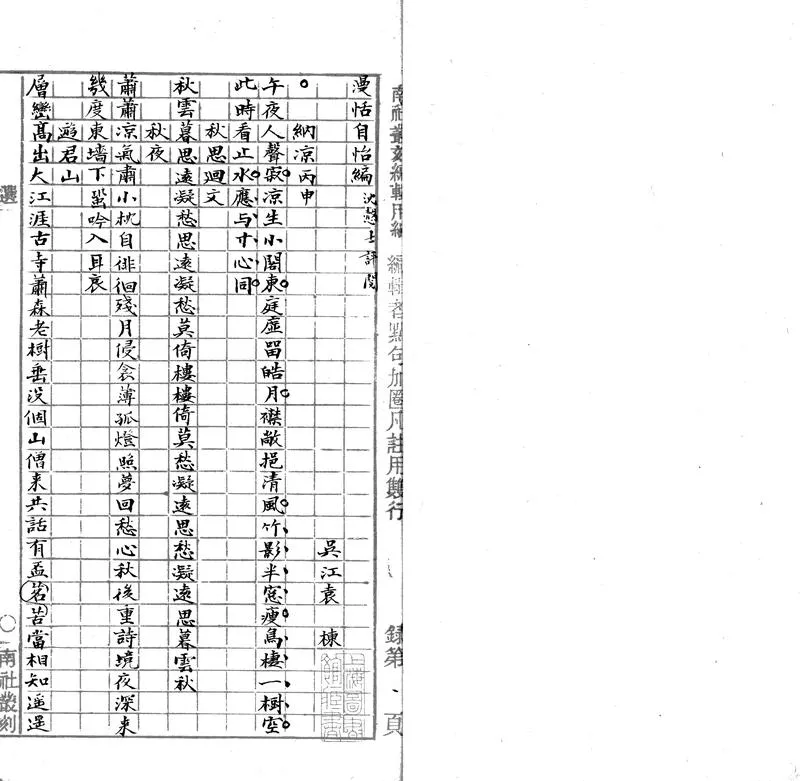 南社叢刻編輯用紙 編輯者點句加圈凡註用雙行 錄第、頁
漫恬自怡編 沈 士評閱
吳江袁 棟
上海圖書館藏書
納涼丙申
午夜人聲寂涼生小閣東庭虛留皓月襟敞挹清風竹影半窓瘦鳥棲一樹空
此時看止水應与寸心同
秋思迴文
秋雲暮思遠凝愁思遠凝愁莫倚樓樓倚莫愁凝遠思愁凝遠思暮雲秋
秋夜
蕭蕭涼氣肅小枕自徘徊殘月侵衾薄孤燈照夢回愁心秋後重詩境夜深来
幾度東墻下蛩吟入耳哀
遊君山
層巒高出大江涯古寺蕭森老樹垂没個山僧来共話有盃茗苦當相知遥遥
選
南社叢刻